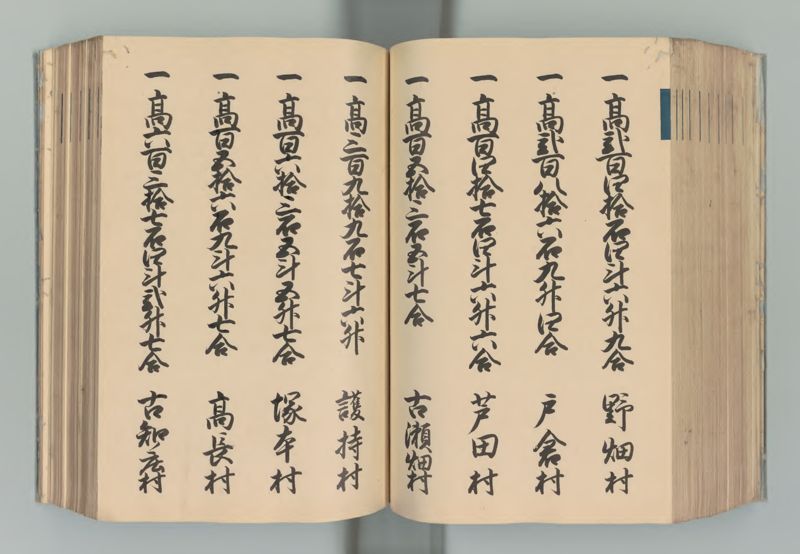 一 高弐百四拾石四斗六升九合 野畑村
一 高弐百八拾六石九升四合 戸倉村
一 高百四拾七石四斗六升六合 芦田村
一 高百五拾三石五斗七合 古瀬畑村
一 高三百九拾九石七斗六升 護持村
一 高百六拾三石五斗五升七合 塚本村
一 高百五拾六石九斗六升七合 高長村
一 高六百三拾七石四斗弐升七合 古知庄村